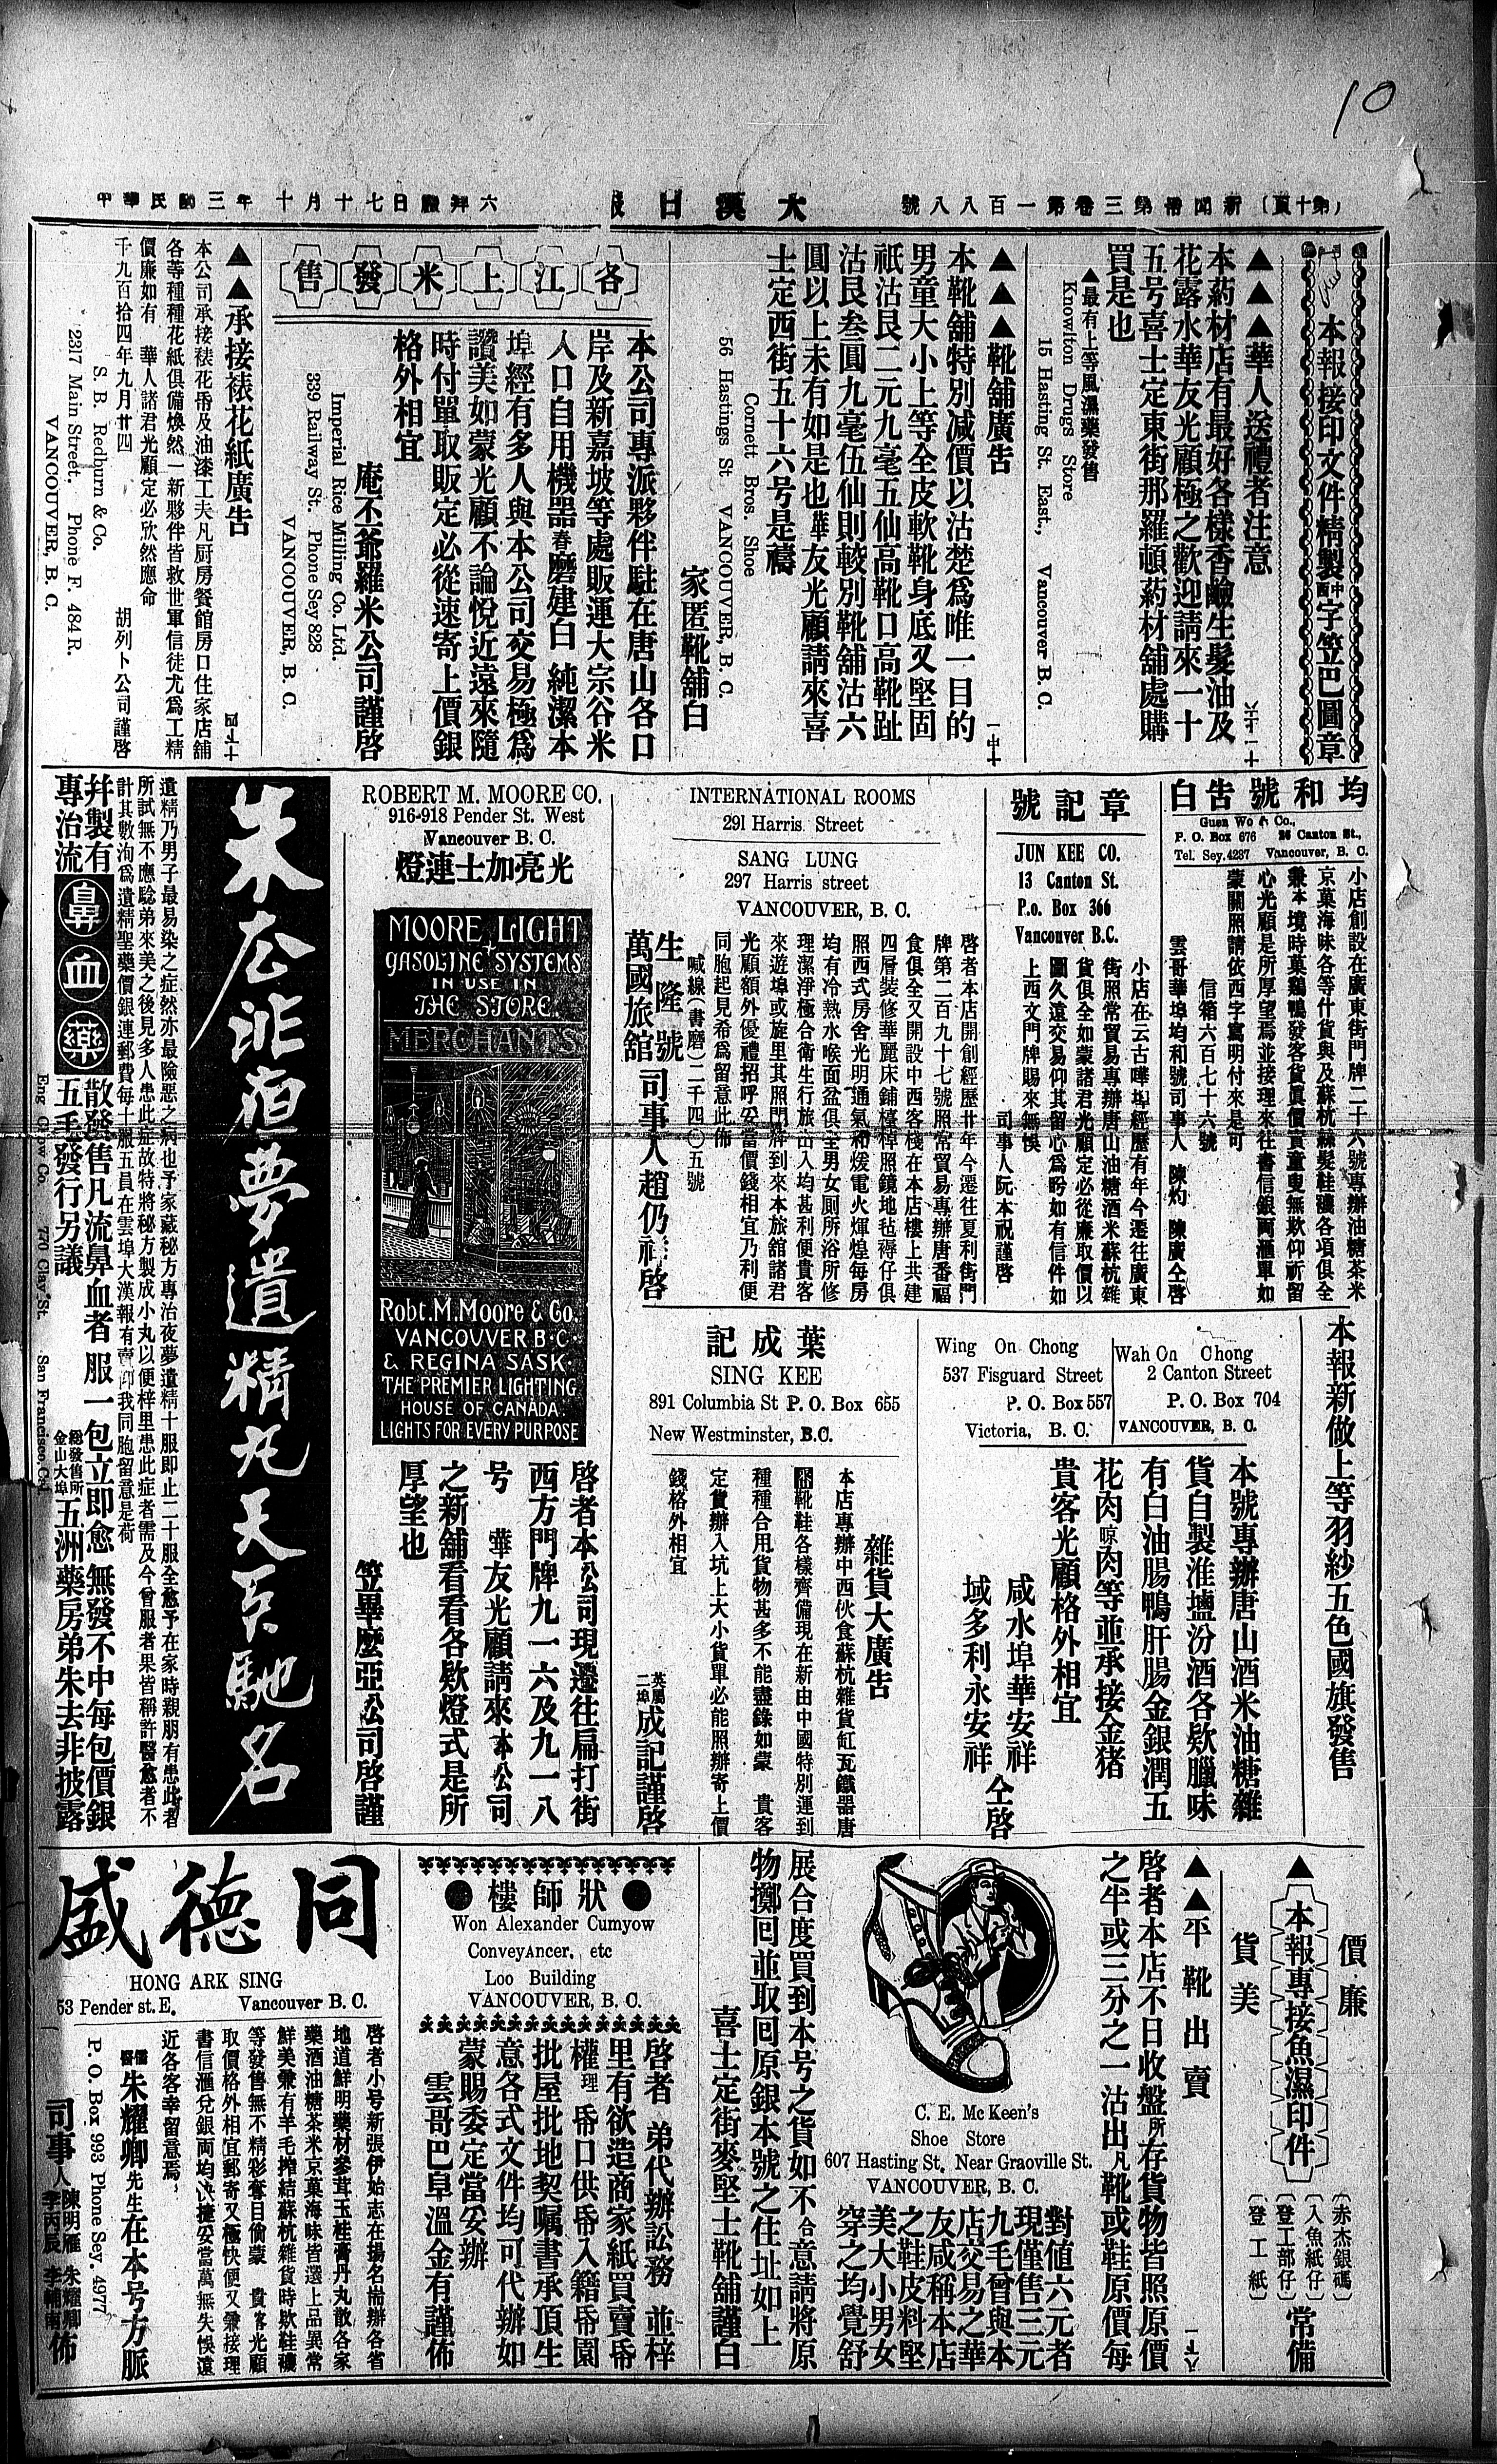 10
中華民國三年 十月十七日禮拜六
大漢日報
新聞冊第三卷第一百八八號 (第十頁)
本報接印文件精製中西字笠巴圖章
▲▲▲華人送禮者注意
本葯材店有最好各樣香臉生髮油及
花露水華友光顧極之歡迎請來一十
五号喜士定東街那羅頓葯材舖處購
買是也
▲最有上等風濕藥發售
Knowlton Drugs Store
15 Hasting St. East., Vancouver B. C.
▲▲▲靴舖廣告
本靴舖特別減價以沽楚爲唯一目的
男童大小上等全皮軟靴身底又堅固
祇沽艮二元九毫五仙高靴口高靴趾
沽艮叁圓九毫伍仙則較別靴舖沽六
圓以上未有如是也華友光顧請來喜
士定西街五十六号是禱
Cornett Bros. Shoe
56 Hastings St VANCOUVER, B. C.
家匿靴舖白
各江上米發售
本公司專派夥伴駐在唐山各口
岸及新嘉坡等處販運大宗谷米
入口自用機器舂磨建白 純潔本
埠經有多人與本公司交易極爲
讚美如蒙光顧不論悅近遠來隨
時付單取販定必從速寄上價銀
格外相宜
庵丕爺羅米公司謹啓
Imperial Rice Milling Co. Ltd.
339 Railway St. Phone Sey 828
VANCOUVER, B. C.
▲▲承接裱花紙廣告
本公司承接裱花帋及油漆工夫凡厨房餐館房口住家店舖
各等種種花紙俱備煥然一新夥伴皆救世軍信徒尤爲工精
價廉如有 華人諸君光顧定必欣然應命
千九百拾四年九月廿四 胡列卜公司謹啓
S. B. Redburn & Co.
2317 Main Street. Phone F. 484 R.
VANCOUVER, B. C.
均和號告白
Guen Wo & Co.,
P. O. Box 676 26 Canton St.,
Tel. Sey. 4237 Vancouver, B. C.
小店創設在廣東街門牌二十六號專辦油糖茶米
京菓海味各等什貨與及蘇杭絲髮鞋襪各項俱全
兼本境時菓鷄鴨發客貨眞價實童叟無欺仰祈留
心光顧是所厚望焉並接理來往書信銀両滙單如
蒙關照請依西字寫明付來是可
信箱六百七十六號
雲哥華埠均和號司事人 陳灼 陳廣仝啓
章記號
JUN KEE CO.
13 Canton St.
P.o. Box 366
Vancouver B.C.
小店在云古嘩埠經歷有年今遷往廣東
街照常貿易專辦唐山油糖酒米蘇杭雜
貨俱全如蒙諸君光顧定必從廉取價以
圖久遠交易仰其留心爲盼如有信件如
上西文門牌賜來無悞
司事人阮本祝謹啓
INTERNATIONAL ROOMS
291 Harris Street
SANG LUNG
297 Harris street
VANCOUVER, B. C.
啓者本店開創經歷廿年今遷往夏利街門
牌第二百九十七號照常貿易專辦唐番福
食俱全又開設中西客棧在本店樓上共建
四層裝修華麗床鋪檯椅照鏡地毡褥仔俱
照西式房舍光明通氣和煖電火煇煌每房
均有冷熱水喉面盆俱全男女厠所浴所修
理潔淨極合衛生行旅出入均甚利便貴客
來遊埠或旋里其照門牌到來本旅舘諸君
光顧額外優禮招呼妥當價錢相宜乃利便
同胞起見希爲留意此佈
喊線(書磨)二千四〇五號
生隆號
萬國旅舘
司事人趙仍祥啓
ROBERT M. MOORE CO.
916-918 Pender St. West
Vancouver B. C.
光亮加士連燈
MOORE LIGHT
+
GASOLINE SYSTEMS
IN USE IN
THE STORE.
MERCHANTS
Robt. M. Moore & Co.
VANCOUVER B.C.
& REGINA SASK.
THE PREMIER LIGHTING
HOUSE OF CANADA.
LIGHTS FOR EVERY PURPOSE
啓者本公司現遷往扁打街
西方門牌九一六及九一八
号 華友光顧請來本公司
之新舖看看各欵燈式是所
厚望也
笠畢麼亞公司啓謹
朱去非泊夢遺精丸天下馳名
遺精乃男子最易染之症然亦最險惡之病也予家藏秘方專治夜夢遺精十服即止二十服全愈予在家時親朋有患此者
所試無不應騐弟來美之後見多人患此症故特將秘方製成小丸以便梓里患此症者需及今曾服者果皆稱許醫愈者不
計其數洵爲遺精聖藥價銀連郵費每十服五員在雲埠大漢報有賣仰我同胞留意是荷
并製有
專治流
鼻血藥
散發售凡流鼻血者 服一包立即愈 無發不中每包價銀
五毛發行另議
總發售所
金山大埠
五洲藥房弟朱去非披露
Eng Chow Co. 770 Clay St. San Francisco, Cal.
本報新做上等羽紗五色國旗發售
Wah On Chong
2 Canton Street
P. O. Box 704
VANCOUVER, B. C.
Wing On Chong
537 Fisguard Street
P. O. Box 557
Victoria, B. C.
本號專辦唐山酒米油糖雜
貨自製淮壚汾酒各欵臘味
有白油腸鴨肝腸金銀潤五
花肉晾肉等並承接金猪
貴客光顧格外相宜
咸水埠華安祥
域多利永安祥
仝啓
葉成記
SING KEE
891 Columbia St P. O. Box 655
New Westminster, B.C.
雜貨大廣告
本店專辦中西伙食蘇杭雜貨缸瓦鐵器唐
靴鞋各樣齊備現在新由中國特別運到
種種合用貨物甚多不能盡錄如蒙 貴客
定貨辦入坑上大小貨單必能照辦寄上價
錢格外相宜
英屬二埠成記謹啓
價廉
貨美
▲本報專接魚濕印件
(赤杰銀碼)
(入魚紙仔)
(登工部仔)
(登工紙)
常備
▲▲平靴出賣
啓者本店不日收盤所存貨物皆照原價
之半或三分之一沽出凡靴或鞋原價每
對值六元者
現僅售三元
九毛曾與本
店交易之華
友咸稱本店
之鞋皮料堅
美大小男女
穿之均覺舒
C. E. Mc Keen's
Shoe Store
607 Hasting St. Near Graoville St.
VANCOUVER, B. C.
展合度買到本号之貨如不合意請將原
物擲囘並取囘原銀本號之住址如上
喜士定街麥堅士靴舖謹白
狀師樓
Won Alexander Cumyow
ConveyAncer, etc
Loo Building
VANCOUVER, B. C.
啓者 弟代辦訟務 並梓
里有欲造商家紙買賣帋
權理帋口供帋入籍帋園
批屋批地契嘱書承頂生
意各式文件均可代辦如
蒙賜委定當妥辦
雲哥巴阜溫金有謹佈
同德盛
HONG ARK SING
53 Pender st. E. Vancouver B. C.
啓者小号新張伊始志在揚名耑辦各省
地道鮮明藥材參茸玉桂膏丹丸散各家
藥酒油糖茶米京菓海味皆選上品異常
鮮美兼有羊毛搾結蘇杭雜貨時欵鞋襪
等發售無不精彩奪目倘蒙 貴客光顧
取價格外相宜郵寄又極快便又兼接理
書信滙兌銀両均決捷妥當萬無失悞遠
近各客幸留意焉
儒醫朱耀卿先生在本号方脈
P. O. Box 993 Phone Sey. 4977
司事人 陳明雁 朱耀卿 李丙辰 佈